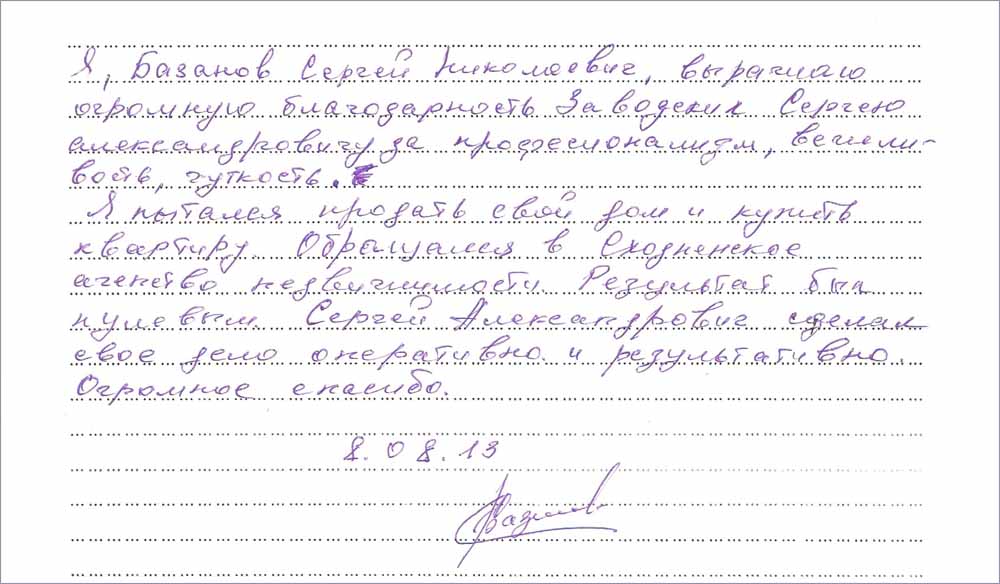 Я, Базанов Сергей Николаевич, выражаю
огромную благодарность Заводских Сергею
александровичу за професионализм, вежли-
вость, чуткость.
Я пытался продать свой дом и купить
квартиру. Обращался в Сходненское
агенство недвижимости. Результат был
нулевым. Сергей Александрович сделал
свое дело оперативно и результативно.
Огромное спасибо.
8.08.13